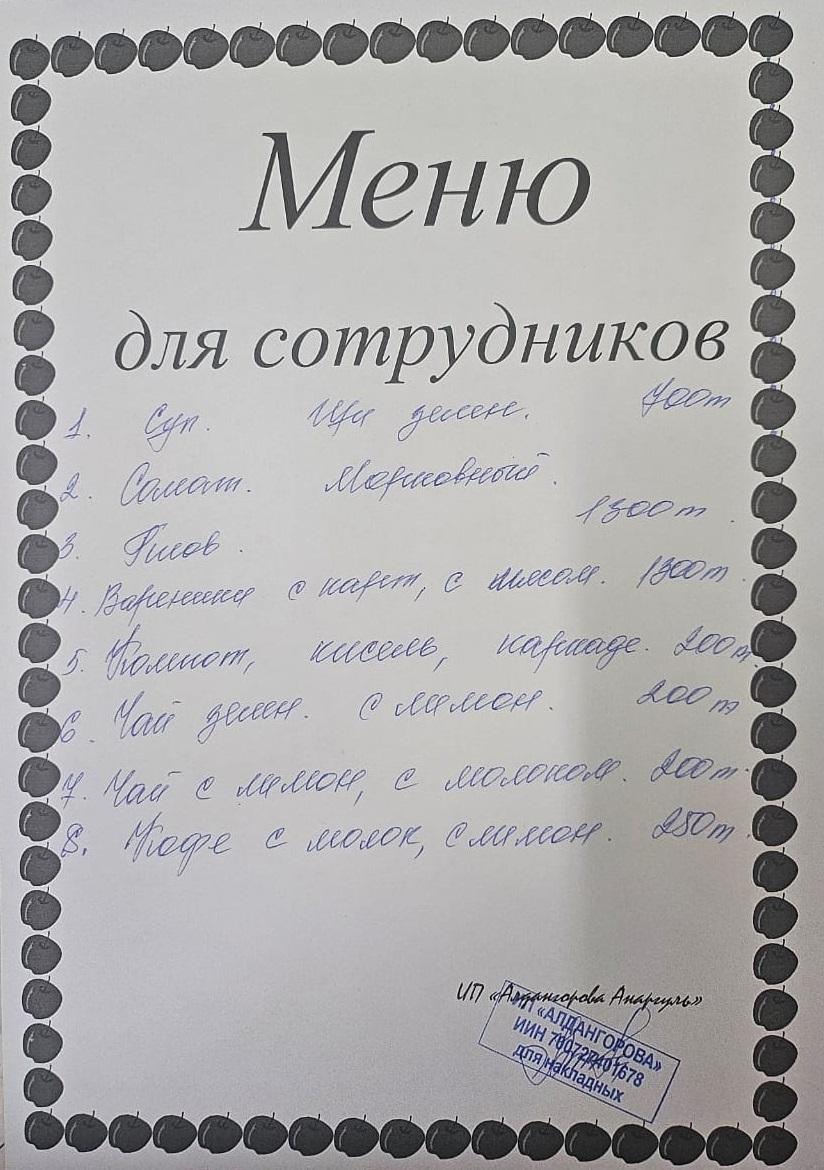 Меню
для сотрудников
1. Суп. Щи зелен. 700т
2. Салат. Морковный.
1300т.
3. Плов.
4. Вареники с карт, с мясом. 1300т.
5. Компот, кисель, каркаде. 200т.
6. Чай зелен. с лимон. 200т
7. Чай с лимон, с молоком. 200т.
8. Кофе с молок, с лимон. 250т.
ИП «Алдангорова Анаргуль»
ИП «АЛДАНГОРОВА»
ИИН
для накладных